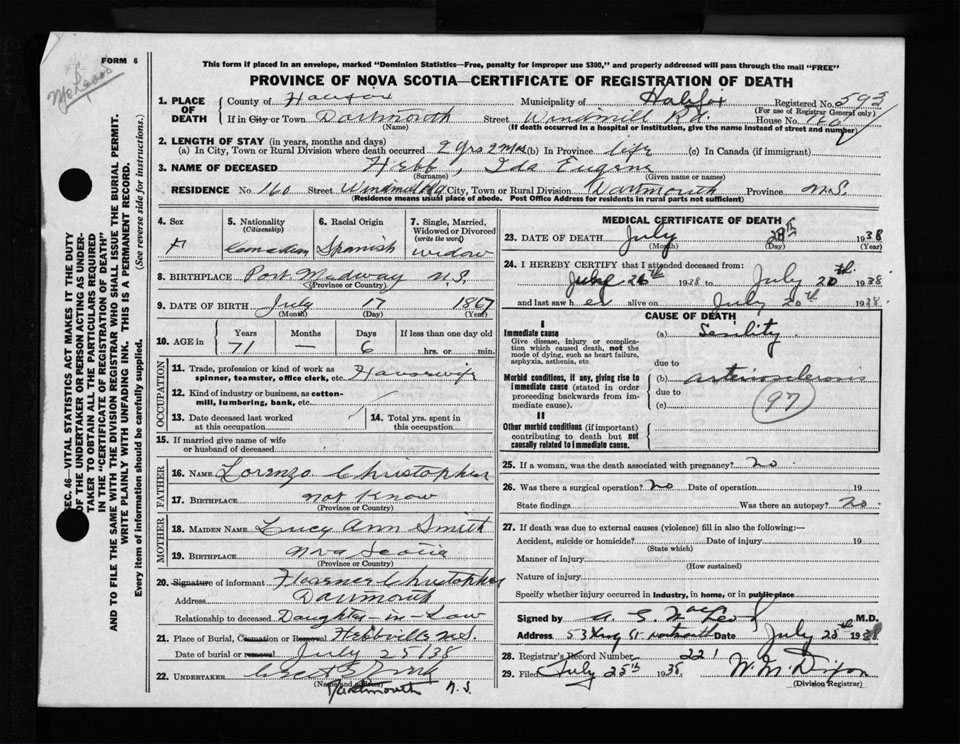 McLeod
FORM 6
This form if placed in an envelope, marked "Dominion Statistics—Free, penalty for improper use $300," and properly addressed will pass through the mail "FREE"
PROVINCE OF NOVA SCOTIA—CERTIFICATE OF REGISTRATION OF DEATH
1. PLACE OF DEATH County of Halifax Municipality of Halifax Registered No. 593
(For use of Registrar General only)
If in City or Town Dartmouth Street Windmill Rd. House No. 160
(Name) (If death occurred in a hospital or institution, give the name instead of street and number)
2. LENGTH OF STAY (in years, months and days)
(a) In City, Town or Rural Division where death occurred 2 yrs 2 mos (b) In Province life (c) In Canada (if immigrant)
3. NAME OF DECEASED Hebb, Ida Eugene
(Surname) (Given name or names)
RESIDENCE No. 160 Street Windmill Rd City, Town or Rural Division Dartmouth Province N.S.
(Residence means usual place of abode. Post Office Address for residents in rural parts not sufficient)
4. Sex 5. Nationality 6. Racial Origin 7. Single, Married, Widowed or Divorced
(Citizenship) (write the word)
F Canadian Spanish widow
8. BIRTHPLACE Port Medway N.S.
(Province or Country)
9. DATE OF BIRTH July 17 1867
(Month) (Day) (Year)
10. AGE in Years Months Days If less than one day old
71 — 6 hrs. or min.
OCCUPATION
11. Trade, profession or kind of work as spinner, teamster, office clerk, etc. Housewife
12. Kind of industry or business, as cotton-mill, lumbering, bank, etc.
13. Date deceased last worked at this occupation
14. Total yrs. spent in this occupation
15. If married give name of wife or husband of deceased
FATHER
16. NAME Lorenzo Christopher
17. BIRTHPLACE not Know
(Province or Country)
MOTHER
18. MAIDEN NAME Lucy Ann Smith
19. BIRTHPLACE Nova Scotia
(Province or Country)
20. Signature of informant Christopher
Address Dartmouth
Relationship to deceased Daughter-in-Law
21. Place of Burial, Cremation or Removal Hebbville N.S.
Date of burial or removal July 25/38
22. UNDERTAKER
(Name and address)
Dartmouth N.S.
MEDICAL CERTIFICATE OF DEATH
23. DATE OF DEATH July 1938
(Month) (Day) (Year)
24. I HEREBY CERTIFY that I attended deceased from:
1938 to July 20th 1938
and last saw her alive on July 20th 1938.
CAUSE OF DEATH
I
Immediate cause (a) Senility
Give disease, injury or complication which caused death, not the mode of dying, such as heart failure, asphyxia, asthenia, etc.
due to
Morbid conditions, if any, giving rise to immediate cause (stated in order proceeding backwards from immediate cause). (b) arteriosclerosis
due to
(c)
97
II
Other morbid conditions (if important) contributing to death but not causally related to immediate cause.
25. If a woman, was the death associated with pregnancy? no
26. Was there a surgical operation? no Date of operation 19
State findings Was there an autopsy? no
27. If death was due to external causes (violence) fill in also the following:—
Accident, suicide or homicide? Date of injury 19
(State which)
Manner of injury
(How sustained)
Nature of injury
Specify whether injury occurred in industry, in home, or in public place
Signed by MacLeod M.D.
Address 53 King St. Dartmouth Date July 1938
28. Registrar's Record Number 221
29. Filed July 25th 1938 W. McDixon
(Division Registrar)
SEC. 46—VITAL STATISTICS ACT MAKES IT THE DUTY
OF THE UNDERTAKER OR PERSON ACTING AS UNDER-
TAKER TO OBTAIN ALL THE PARTICULARS REQUIRED
IN THE "CERTIFICATE OF REGISTRATION OF DEATH"
AND TO FILE THE SAME WITH THE DIVISION REGISTRAR WHO SHALL ISSUE THE BURIAL PERMIT.
WRITE PLAINLY WITH UNFADING INK. THIS IS A PERMANENT RECORD.
Every item of information should be carefully supplied. (See reverse side for instructions.)